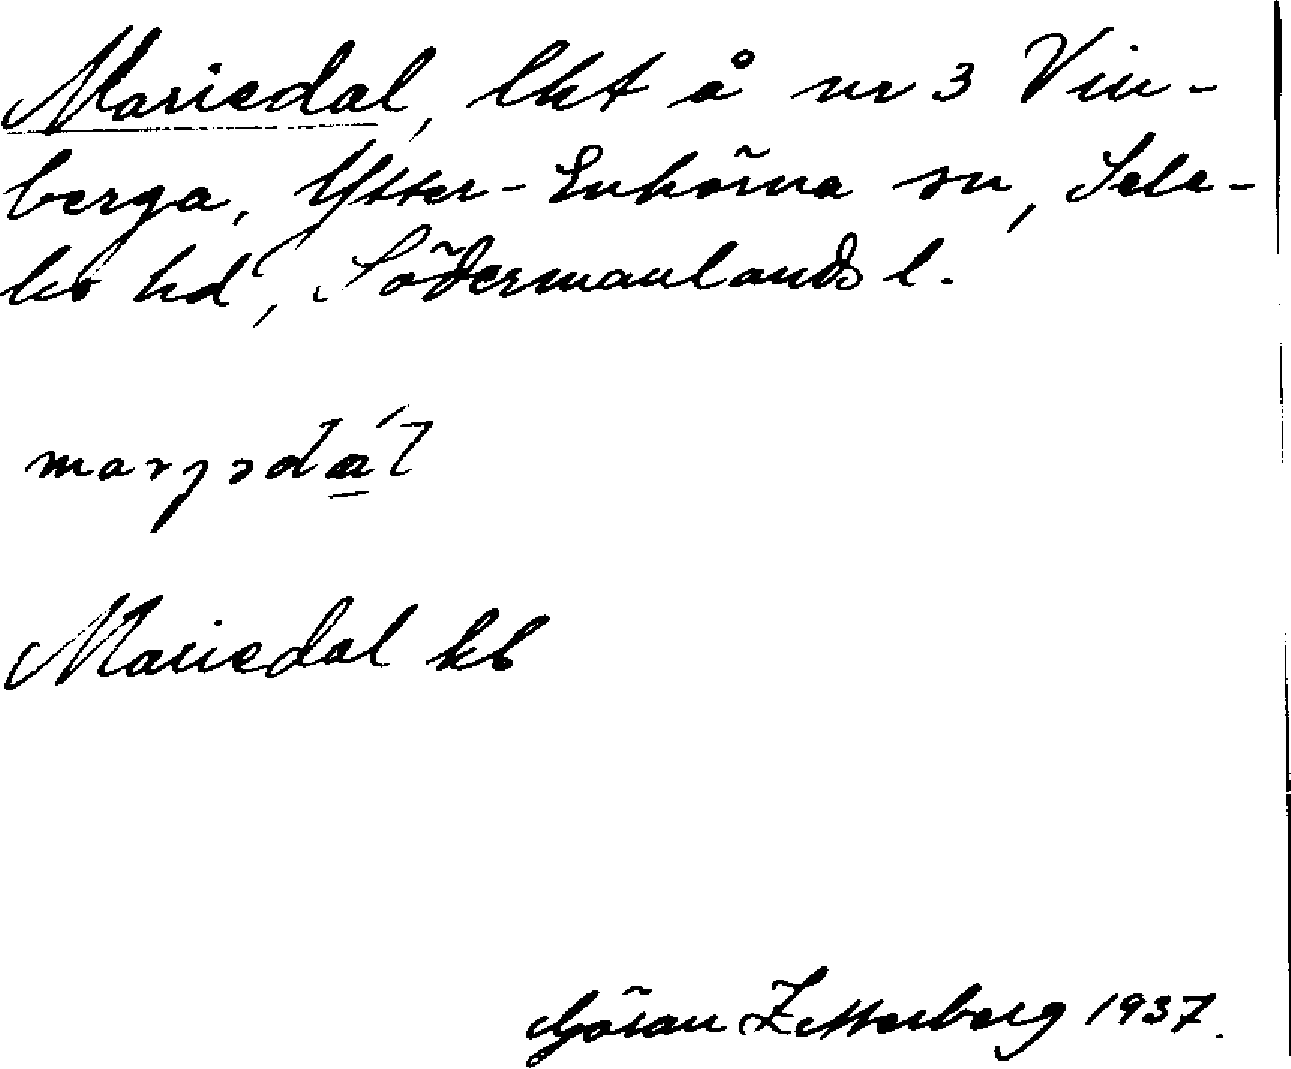 Mariedal, lht å nr 3 Vin-
berga, Ytter-Enhörna sn, Sele-
bo hd, Södermanlands l.
marjədá̲l
Mariedal kb
Göran Zetterberg 1937.